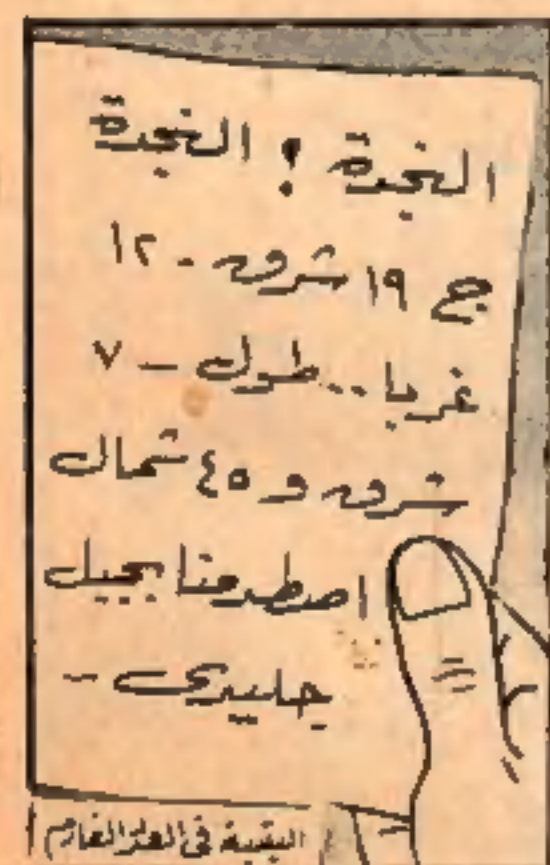 النجدة ! النجدة
جح ١٩ شرق - ١٢
غربا .. طول - ٧
شرق و ٤٥ شمال
اصطدمنا بجبل
جليدى -
البقية فى العدد القادم